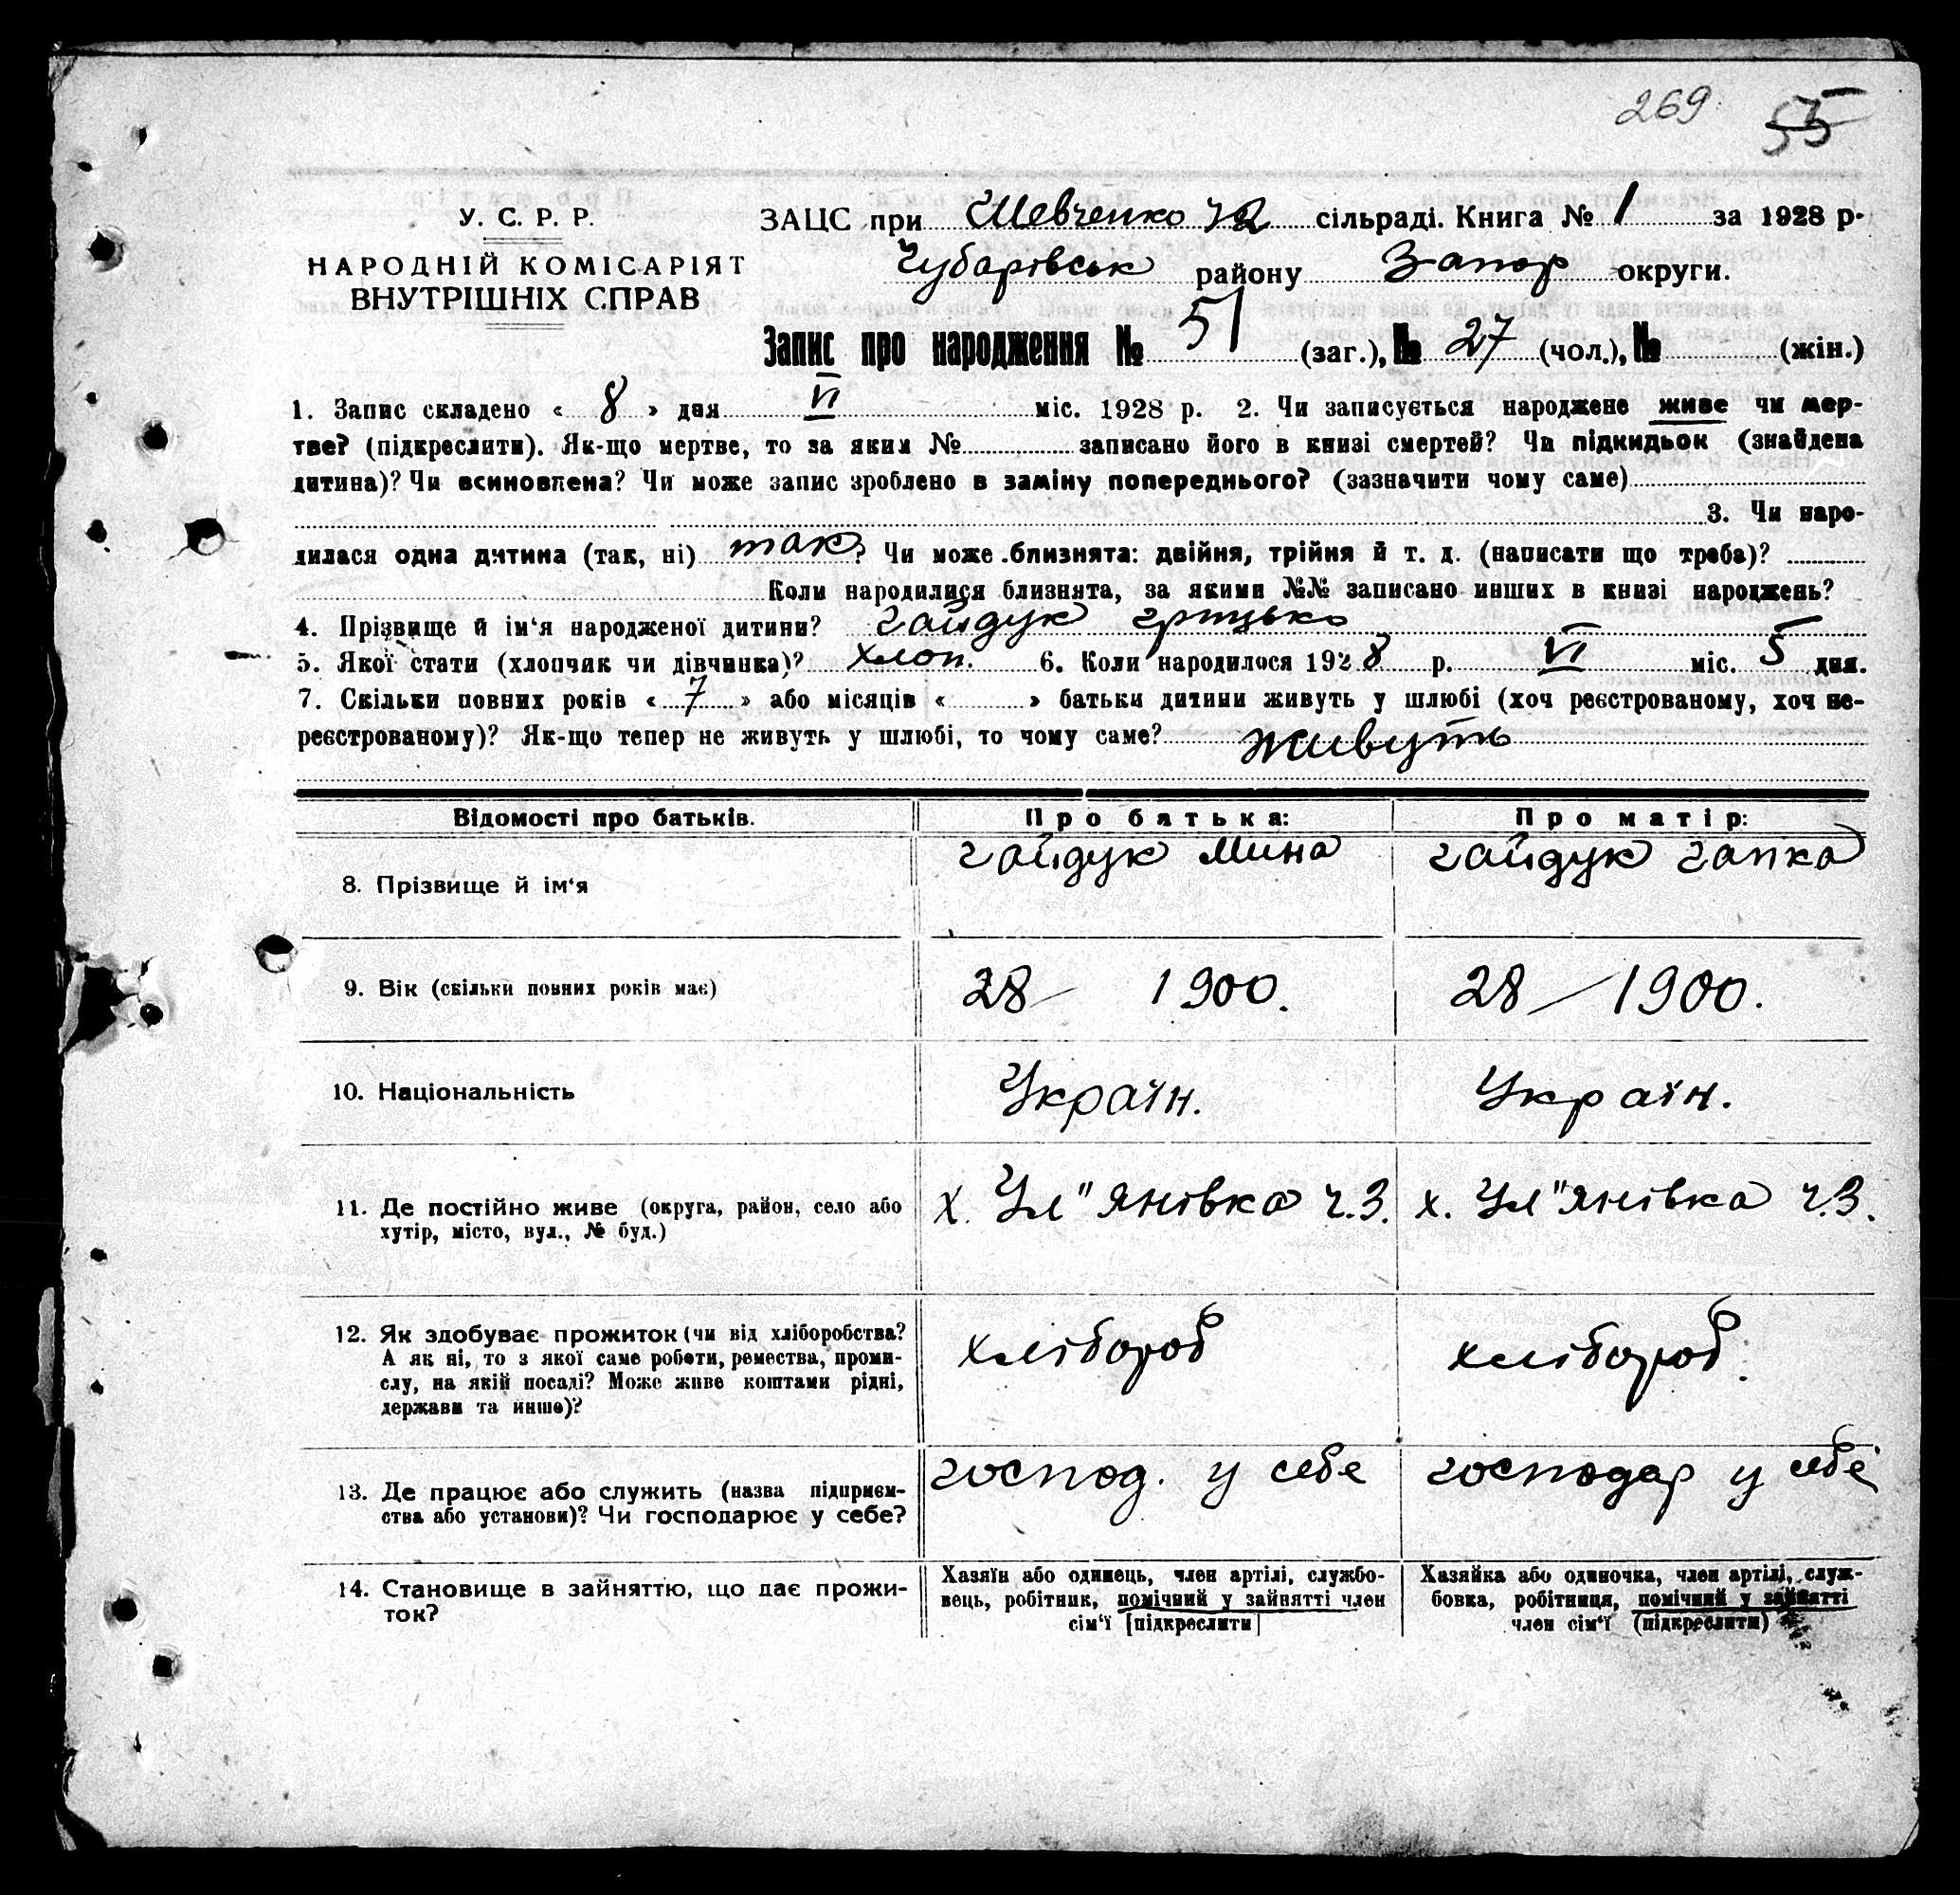 269 55
У. С. Р. Р.
НАРОДНІЙ КОМІСАРІЯТ
ВНУТРІШНІХ СПРАВ
ЗАЦС при Шевченко сільраді. Книга № 1 за 1928 р.
Чубарівськ району Запор округи.
Запис про народження № 51 (заг.), № 27 (чол.), № (жін.)
1. Запис складено « 8 » дня VI міс. 1928 р. 2. Чи записується народжене живе чи мер-
тве? (підкреслити). Як-що мертве, то за яким № записано його в книзі смертей? Чи підкидьок (знайдена
дитина)? Чи всиновлена? Чи може запис зроблено в заміну попереднього? (зазначити чому саме)
3. Чи наро-
дилася одна дитина (так, ні) так? Чи може близнята: двійня, трійня й т. д. (написати що треба)?
Коли народилися близнята, за якими №№ записано инших в книзі народжень?
4. Прізвище й ім‘я народженої дитини? Гайдук Грицько
5. Якої стати (хлопчик чи дівчинка)? хлоп. 6. Коли народилося 1928 р. VI міс. 5 дня.
7. Скільки повних років « 7 » або місяців « » батьки дитини живуть у шлюбі (хоч реєстрованому, хоч не-
реєстрованому)? Як-що тепер не живуть у шлюбі, то чому саме? живуть
Відомості про батьків. Про батька: Про матір:
8. Прізвище й ім‘я Гайдук Мина Гайдук Гапка
9. Вік (скільки повних років має) 28 1900. 28 / 1900.
10. Національність Україн. Україн.
11. Де постійно живе (округа, район, село або
хутір, місто, вул., № буд.)
х. Ул"янівка ч.З. х. Ул"янівка ч.З.
12. Як здобуває прожиток (чи від хліборобства?
А як ні, то з якої саме роботи, ремества, проми-
слу, на якій посаді? Може живе коштами рідні,
держави та инше)?
хлібороб хлібороб.
13. Де працює або служить (назва підприєм-
ства або установи)? Чи господарює у себе?
господ. у себе господар у себе
14. Становище в зайняттю, що дає прожи-
ток?
Хазяїн або одинець, член артілі, службо-
вець, робітник, помічний у зайнятті член
сім‘ї [підкреслити]
Хазяйка або одиночка, член артілі, служ-
бовка, робітниця, помічний у зайнятті
член сім‘ї (підкреслити)